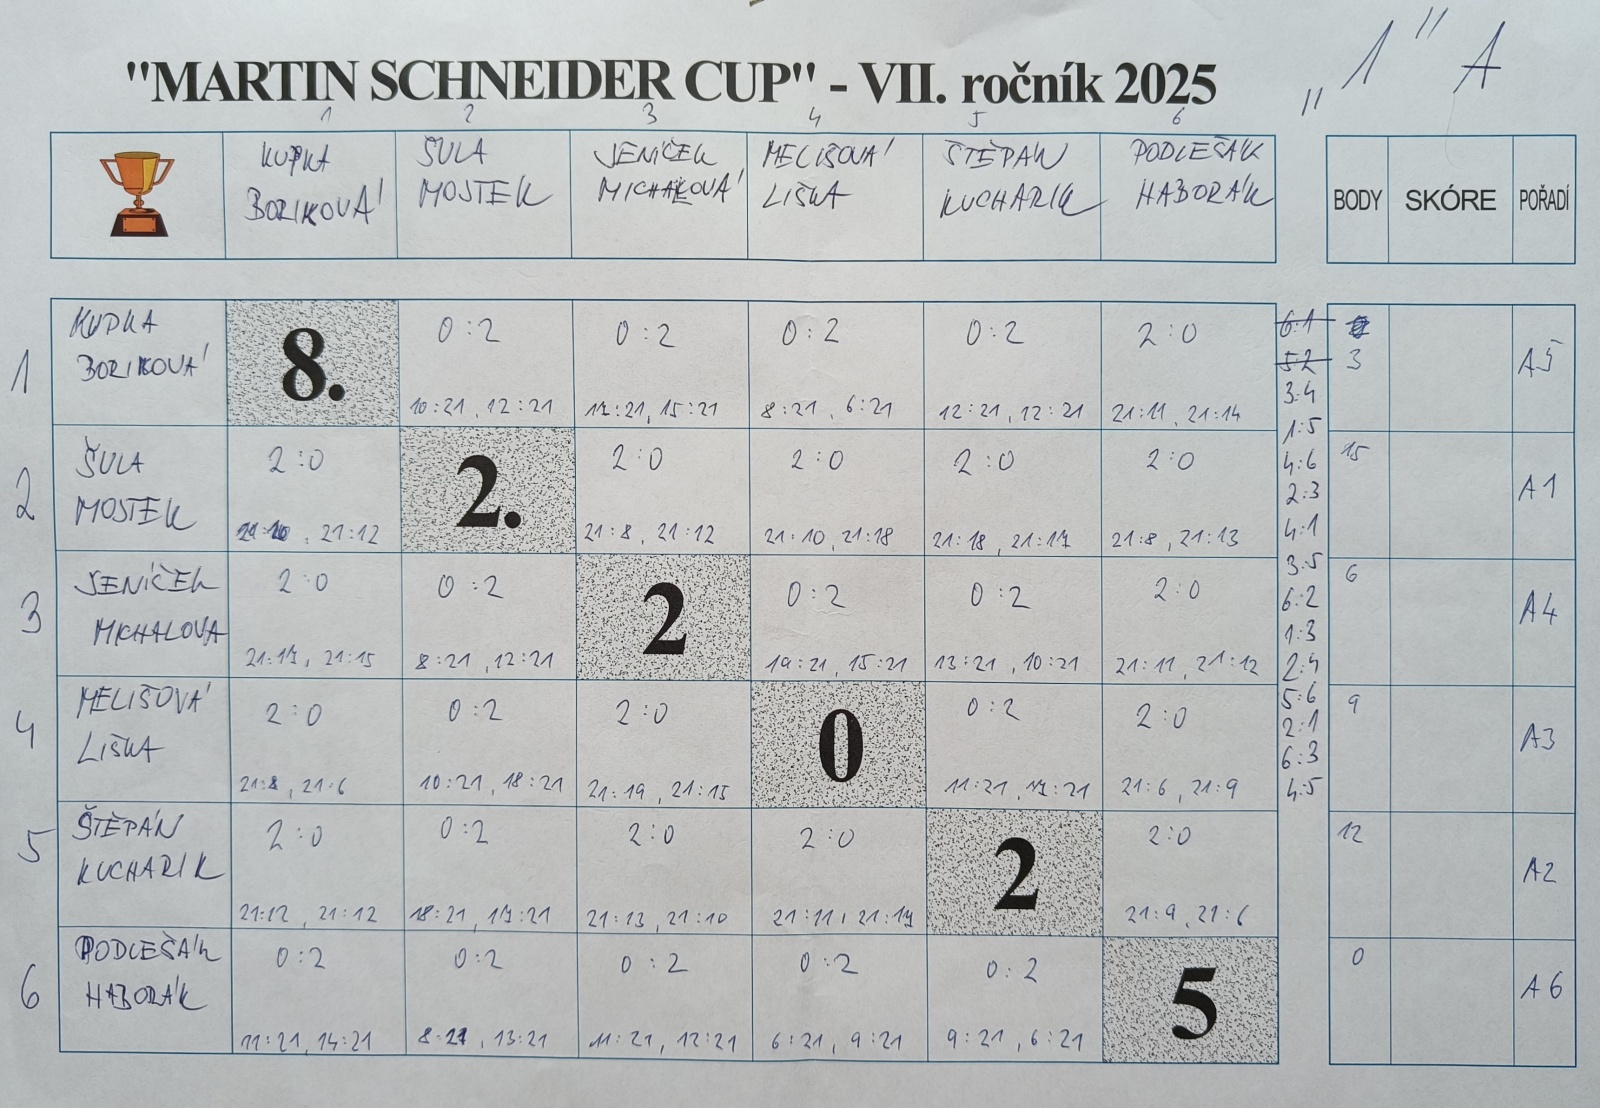 "MARTIN SCHNEIDER CUP" - VII. ročník 2025
„1" A
1 2 3 4 5 6
KUPKA BORIKOVÁ
ŠULA MOSTEK
JENÍČEK MICHALOVÁ
MELIŠOVÁ LIŠKA
ŠTĚPÁN KUCHARIK
PODLEŠÁK HABORÁK
BODY SKÓRE POŘADÍ
1 KUPKA BORIKOVÁ 8. 0:2 0:2 0:2 0:2 2:0 3 A5
10:21, 12:21 17:21, 15:21 8:21, 6:21 12:21, 12:21 21:11, 21:14
2 ŠULA MOSTEK 2:0 2. 2:0 2:0 2:0 2:0 15 A1
21:10, 21:12 21:8, 21:12 21:10, 21:18 21:18, 21:17 21:8, 21:13
3 JENÍČEK MICHALOVA 2:0 0:2 2 0:2 0:2 2:0 6 A4
21:17, 21:15 8:21, 12:21 19:21, 15:21 13:21, 10:21 21:11, 21:12
4 MELIŠOVÁ LIŠKA 2:0 0:2 2:0 0 0:2 2:0 9 A3
21:8, 21:6 10:21, 18:21 21:19, 21:15 11:21, 17:21 21:6, 21:9
5 ŠTĚPÁN KUCHARIK 2:0 0:2 2:0 2:0 2 2:0 12 A2
21:12, 21:12 18:21, 17:21 21:13, 21:10 21:11, 21:17 21:9, 21:6
6 PODLEŠÁK HABORÁK 0:2 0:2 0:2 0:2 0:2 5 0 A6
11:21, 14:21 8:21, 13:21 11:21, 12:21 6:21, 9:21 9:21, 6:21
6:1
5:2
3:4
1:5
4:6
2:3
4:1
3:5
6:2
1:3
2:4
5:6
2:1
6:3
4:5